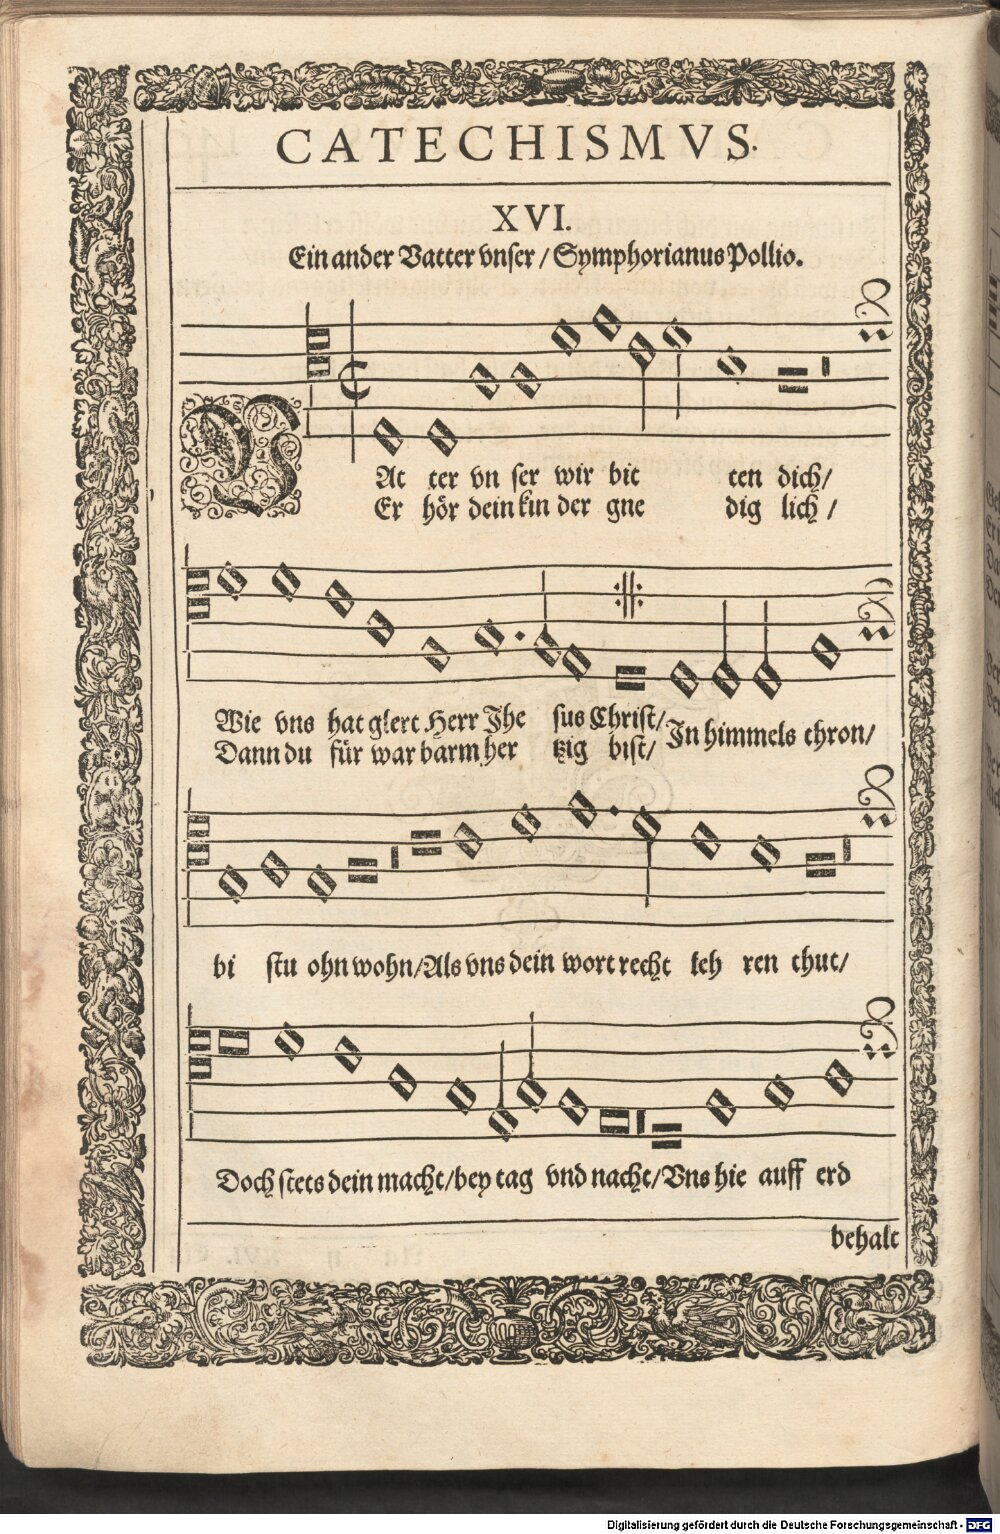 CATECHISMVS.
XVI.
Ein ander Vatter vnser / Symphorianus Pollio.
VAt ter vn ser wir bit ten dich/
Er hör dein kin der gne dig lich /
Wie vns hat glert Herr Jhe sus Christ/ In himmels thron/
Dann du für war barm her tzig bist/
bi stu ohn wohn/Als vns dein wort recht leh ren thut/
Doch stets dein macht/bey tag vnd nacht/Vns hie auff erd
behalt
Digitalisierung gefördert durch die Deutsche Forschungsgemeinschaft - DFG